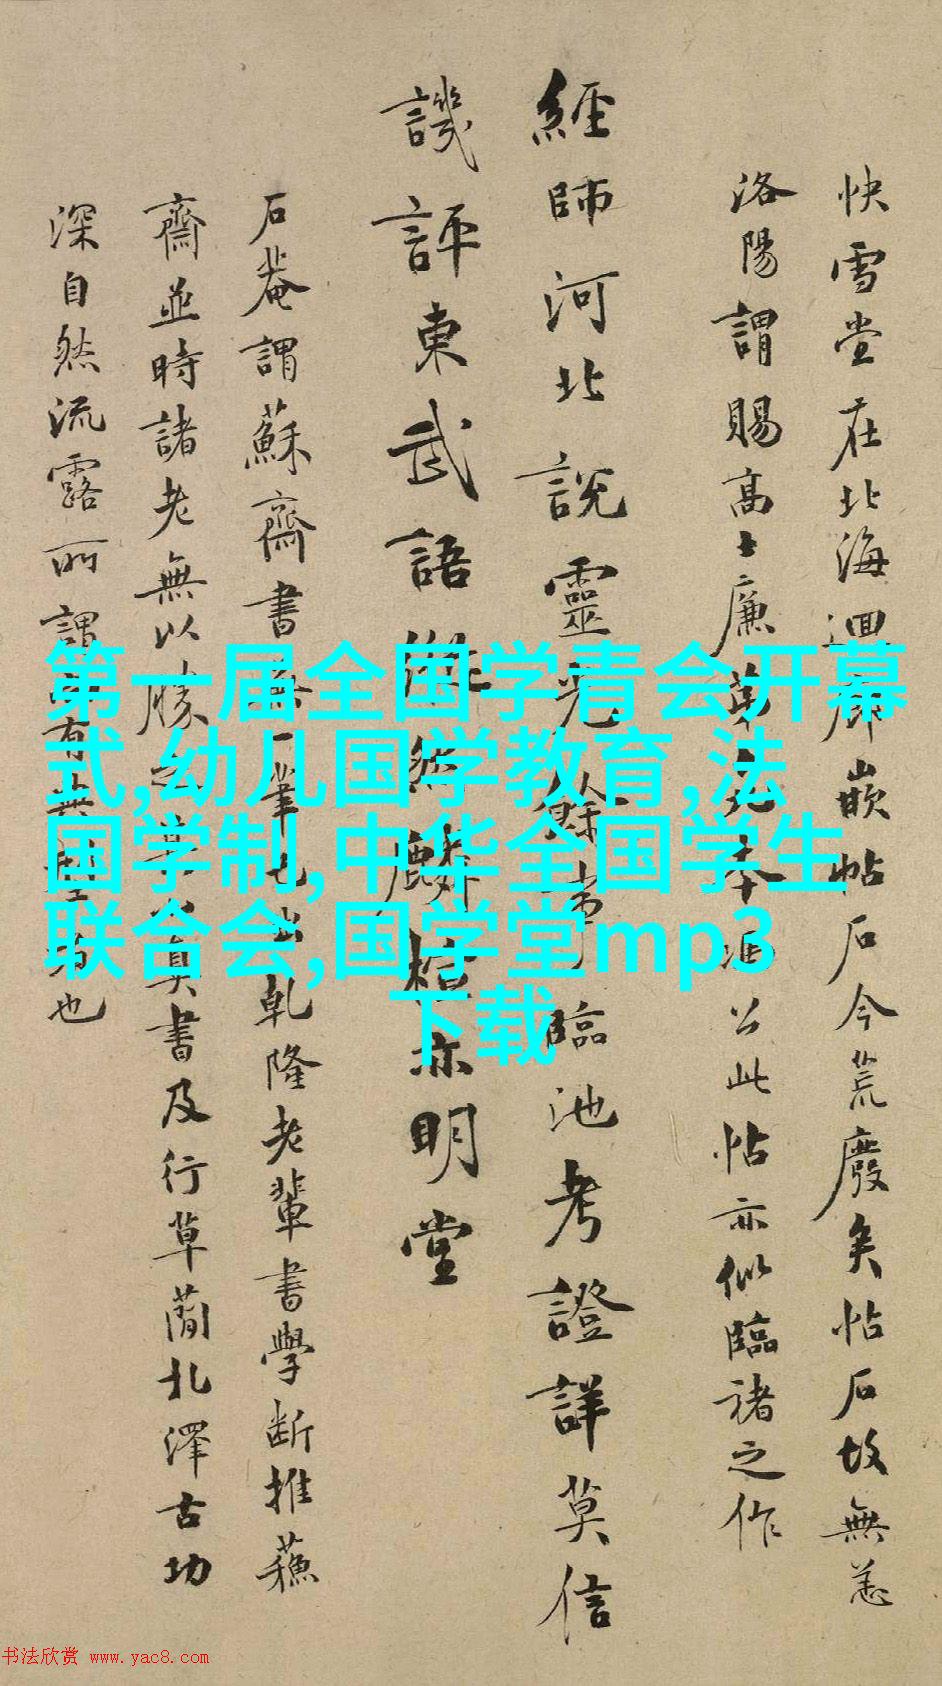 快雪堂在北海迴廊嵌帖石今荒廢矣帖石故無恙
洛陽謂賜高士廉第此本馮公此帖亦似臨褚之作
經師河北說靈光餘事臨池考證詳莫信
譏評東武語漸然麟楦亦明堂
石菴謂蘇齋書無一筆也出乾隆老輩書學斷推蘓
齋並時諸老無以勝之真書及行草蘭北澤古功
深自然流露所謂有也
第一届全国学青会开幕
式,幼儿国学教育,法
国学制,中华全国学生
联合会,国学堂mp3
下载
书法欣赏 www.yac8.com